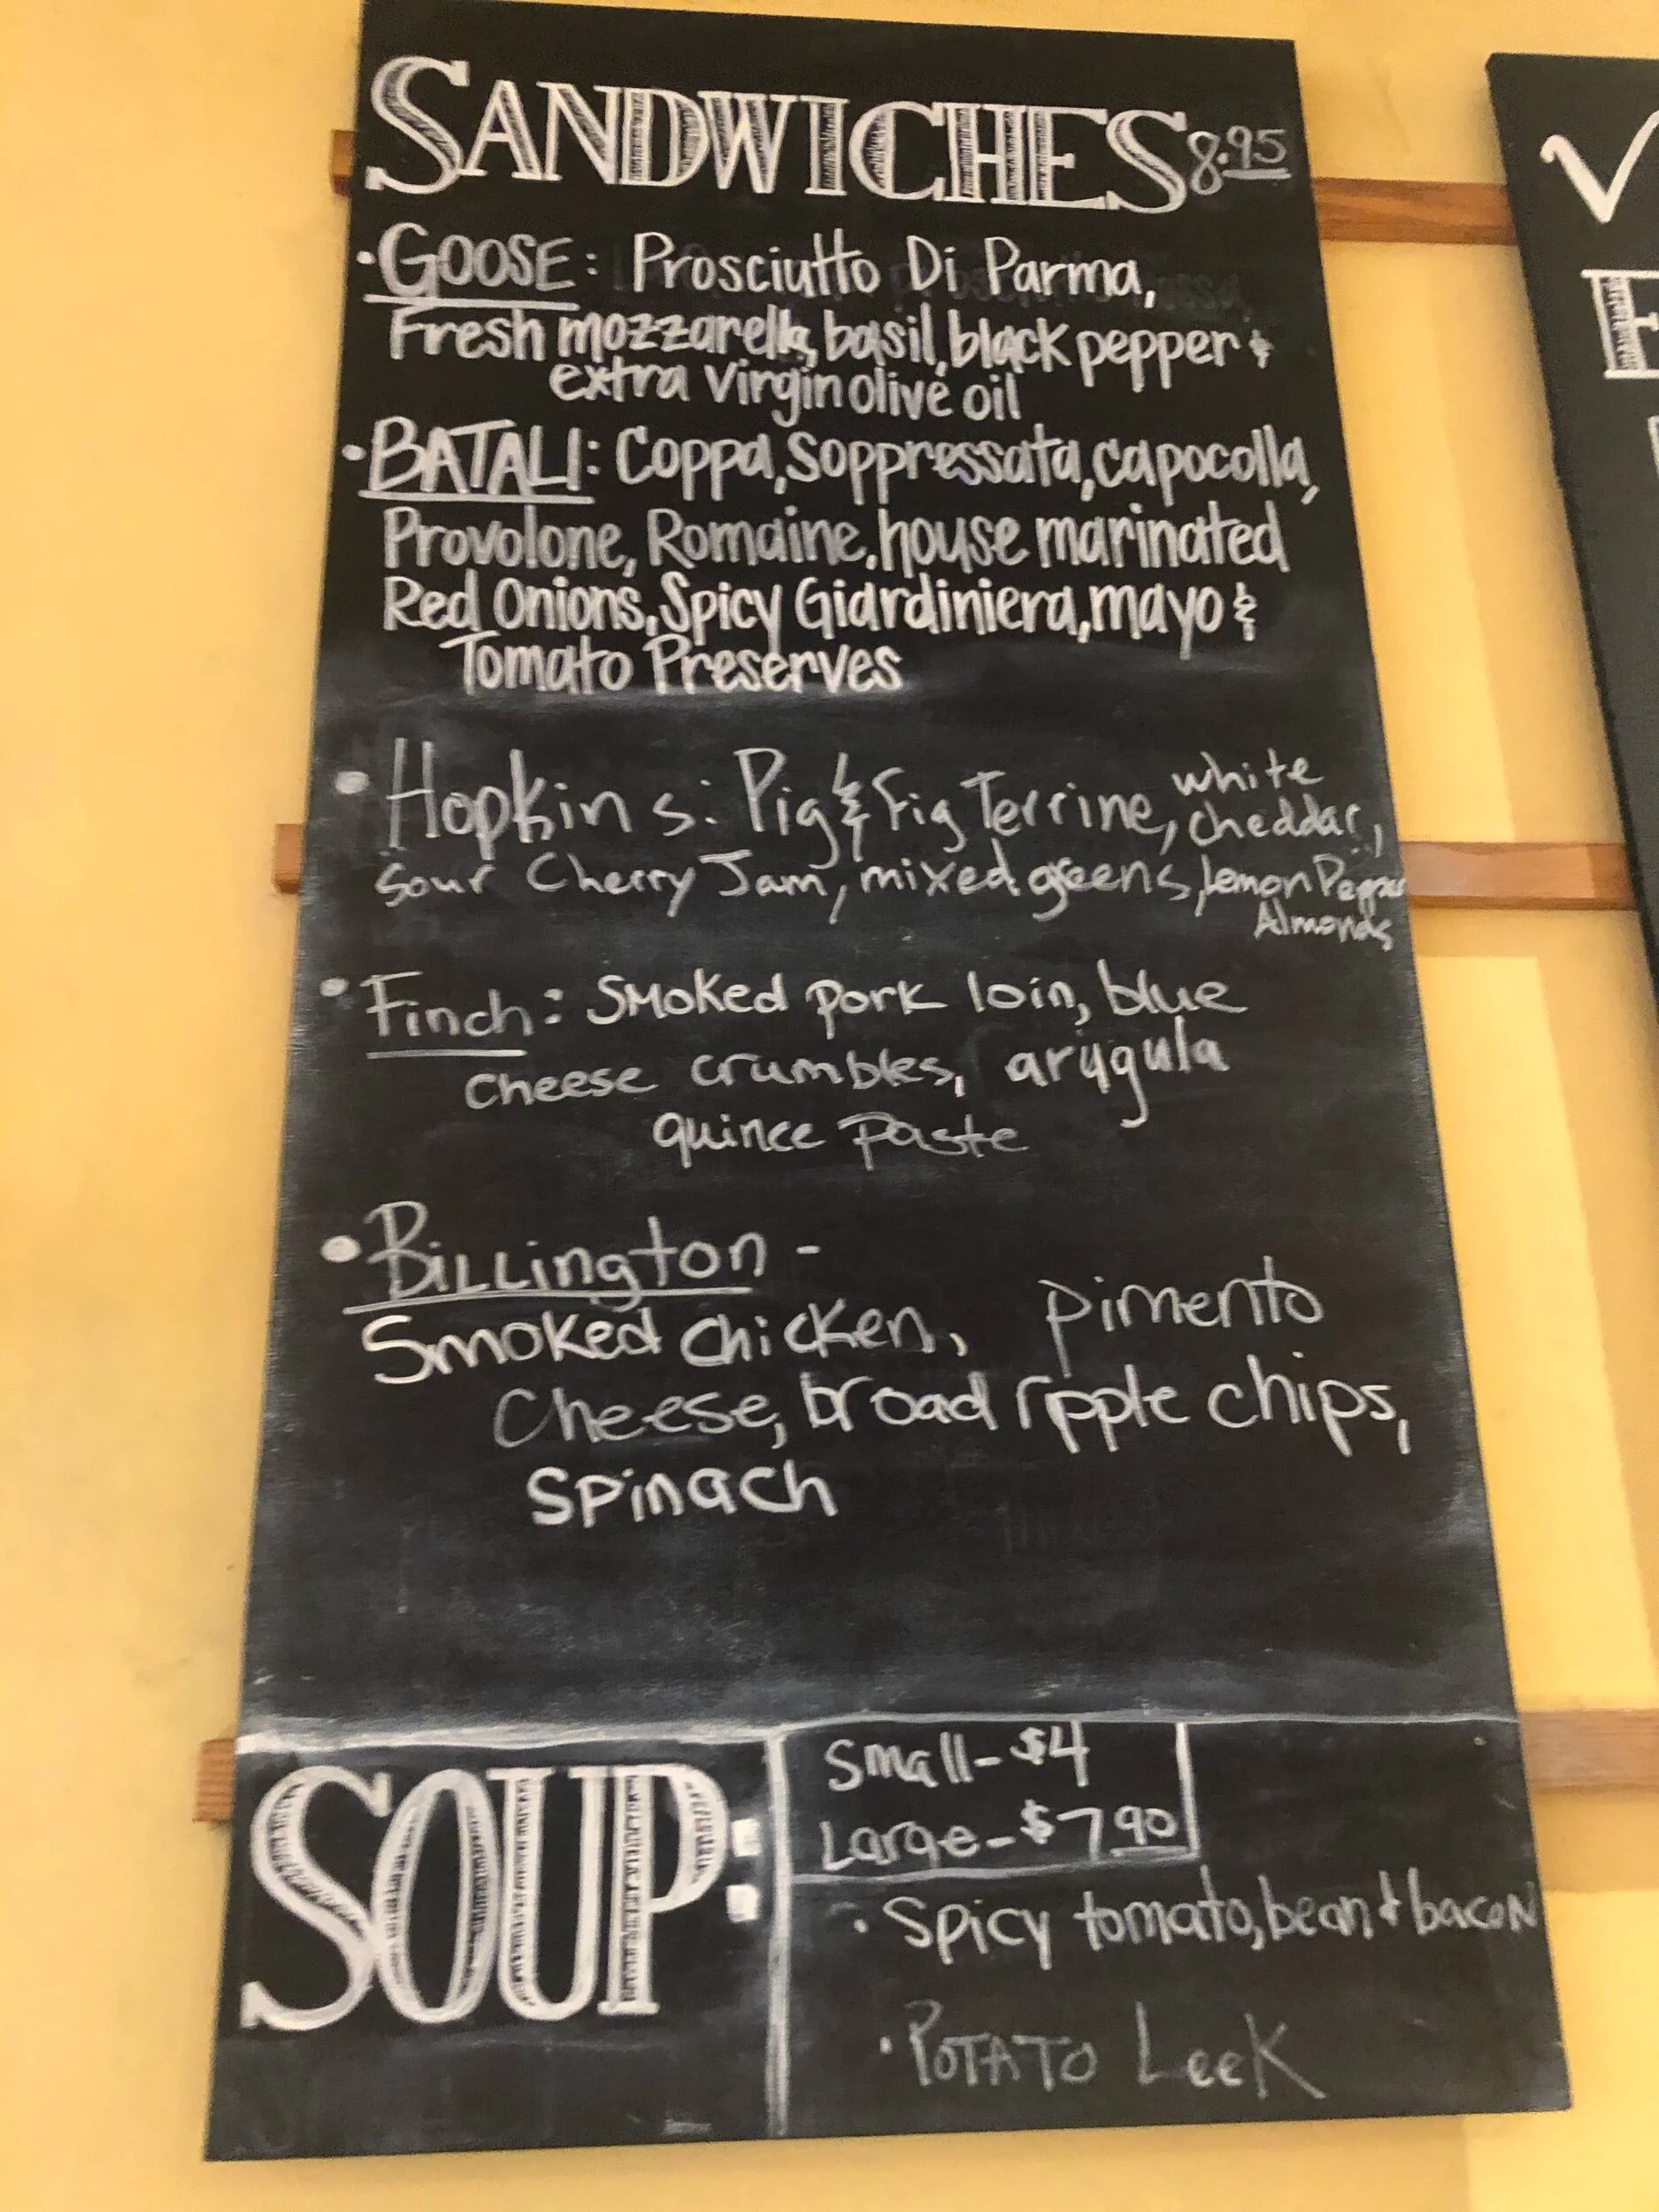 SANDWICHES 8.95
• GOOSE: Prosciutto Di Parma,
Fresh mozzarella, basil, black pepper &
extra virgin olive oil
• BATALI: Coppa, Soppressata, capocolla,
Provolone, Romaine, house marinated
Red Onions, Spicy Giardiniera, mayo &
Tomato Preserves
• Hopkins: Pig & Fig Terrine, white
cheddar,
Sour Cherry Jam, mixed greens, Lemon Pepper
Almonds
• Finch: Smoked pork loin, blue
cheese crumbles, arugula
quince paste
• Billington -
Smoked chicken, pimento
Cheese, broad ripple chips,
Spinach
SOUP:
Small - $4
Large - $7 90
• Spicy tomato, bean & bacon
• POTATO LeeK